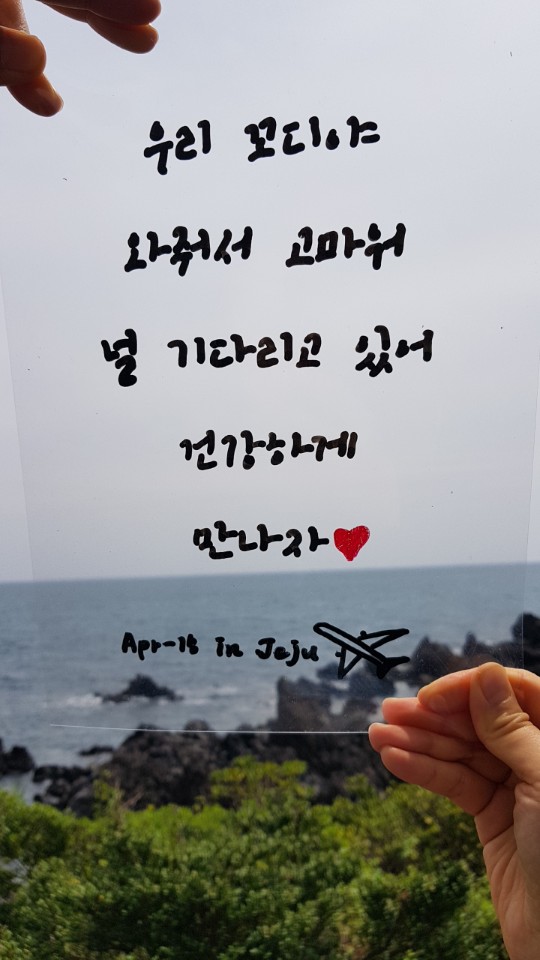 우리 꼬디야
와줘서 고마워
널 기다리고 있어
건강하게
만나자
Apr-18 in Jeju